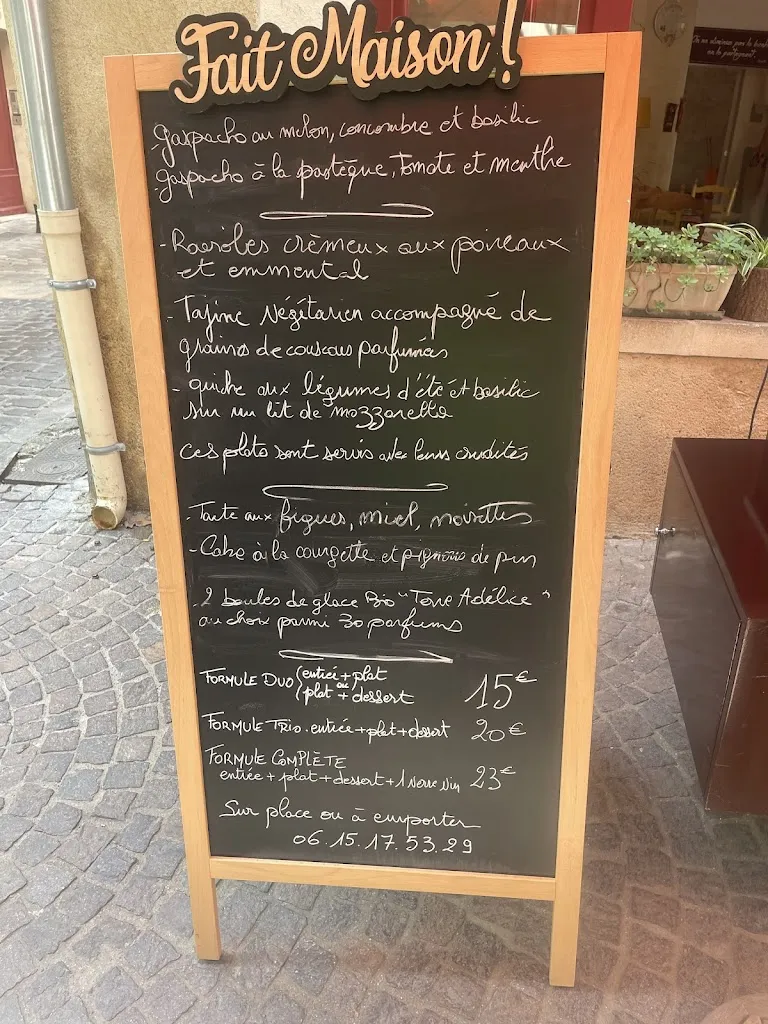 Fait Maison !
- gaspacho au melon, concombre et basilic
- gaspacho à la pastèque, tomate et menthe
- Ravioles crèmeux aux poireaux
et emmental
- Tajine végétarien accompagné de
grains de couscous parfumés
- quiche aux légumes d'été et basilic
sur un lit de mozzarella
ces plats sont servis avec leurs crudités
- Tarte aux figues, miel, noisettes
- Cake à la courgette et pignons de pin
- 2 boules de glace Bio "Terre Adélice"
au choix parmi 30 parfums
FORMULE DUO (entrée + plat
ou
(plat + dessert 15€
FORMULE TRIO. entrée + plat + dessert 20€
FORMULE COMPLÈTE
entrée + plat + dessert + 1 verre vin 23€
Sur place ou à emporter
06.15.17.53.29